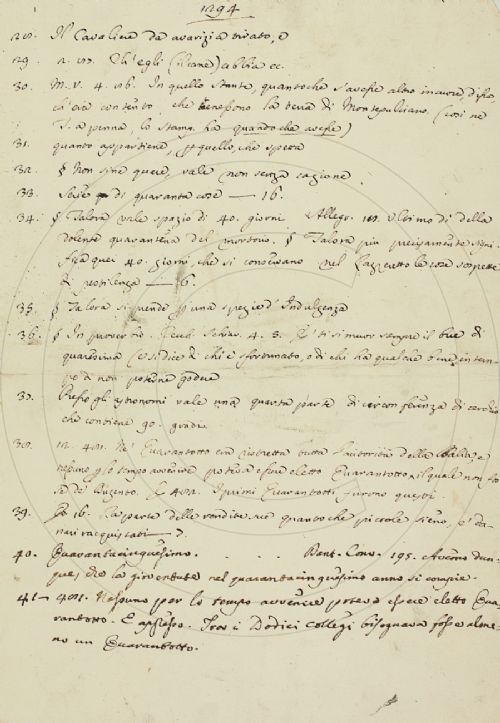 1294
28. Il Cavaliere da avarizia tirato, e
29. Ch'egli abbia ec.
30. M. V. 4. 26. In quello stante, quantoche s'avesse altro in cuore, disse
ch'era contento, che tenessono la terra di Montepulciano. (così ne
T. a penna, lo stamp. ha quandoche avesse)
31. quando appartiene, quello, che spetta
32. § Non sine quare, vale non senza cagione
33. di quaranta cose — 16.
34. § Talora vale spazio di 40. giorni Allegr. 121. Ultimo dì della
dolente quarantena del mortorio. § Talora più precisamente
quei 40. giorni, che si conservano nel Lazzeretto le cose sospette
di pestilenza — 6.
35. § Talora si prende spezie d'Indulgenza
36. § In proverbio. 4. 3. ti si muor sempre il bue di
quaresima e si dice di chi è sfortunato, o di chi ha qualche bene in tem-
po da non potere godere
37. Presso gli astronomi vale una quarta parte di circonferenza di cerchio
che contiene 90. gradi
38. Quarantotto era ristretta tutta l'autorità della Balìa, e
nessuno lo tempo avvenire poteva esser eletto Quarantotto, il quale non fos-
se de' Dugento. I primi Quarantotti furono questi
39. 16. La parte delle rendite, nè quantoche piccole sieno, e' da-
nari racquistati — 7.
40. Quarantacinquesimo. . . . . Dant. Conv. 195. Avemo dun-
que, che la gioventute nel quarantacinquesimo anno si compie.
41 — Nessuno per lo tempo avvenire poteva essere eletto Qua-
rantotto. E appresso. Tra i Dodici Collegi bisognava fosse alme-
no un Quarantotto.